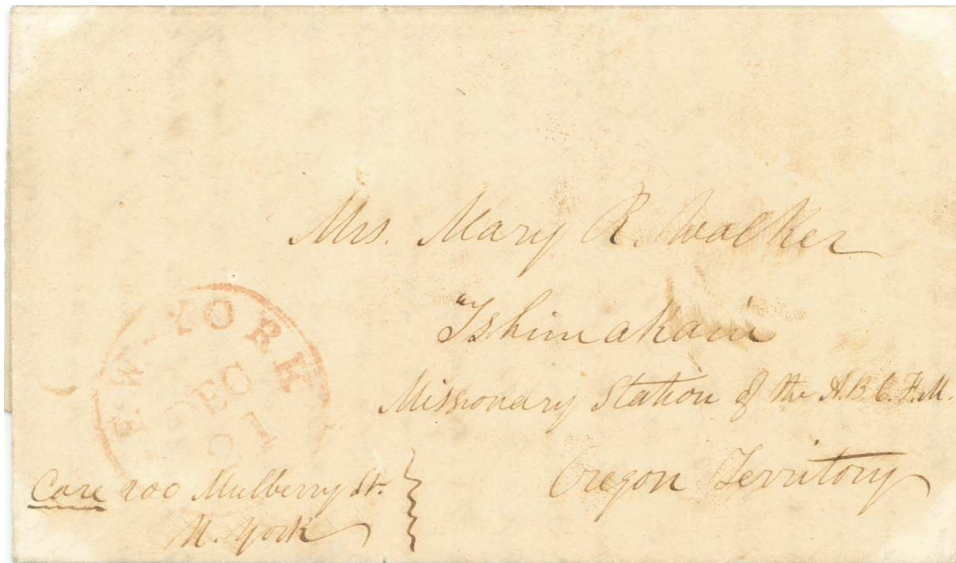 Mrs. Mary R. Walker
Tshimakain
Missionary Station of the A.B.C.F.M.
Oregon Territory
NEW-YORK
DEC
Care 200 Mulberry St.
N. York